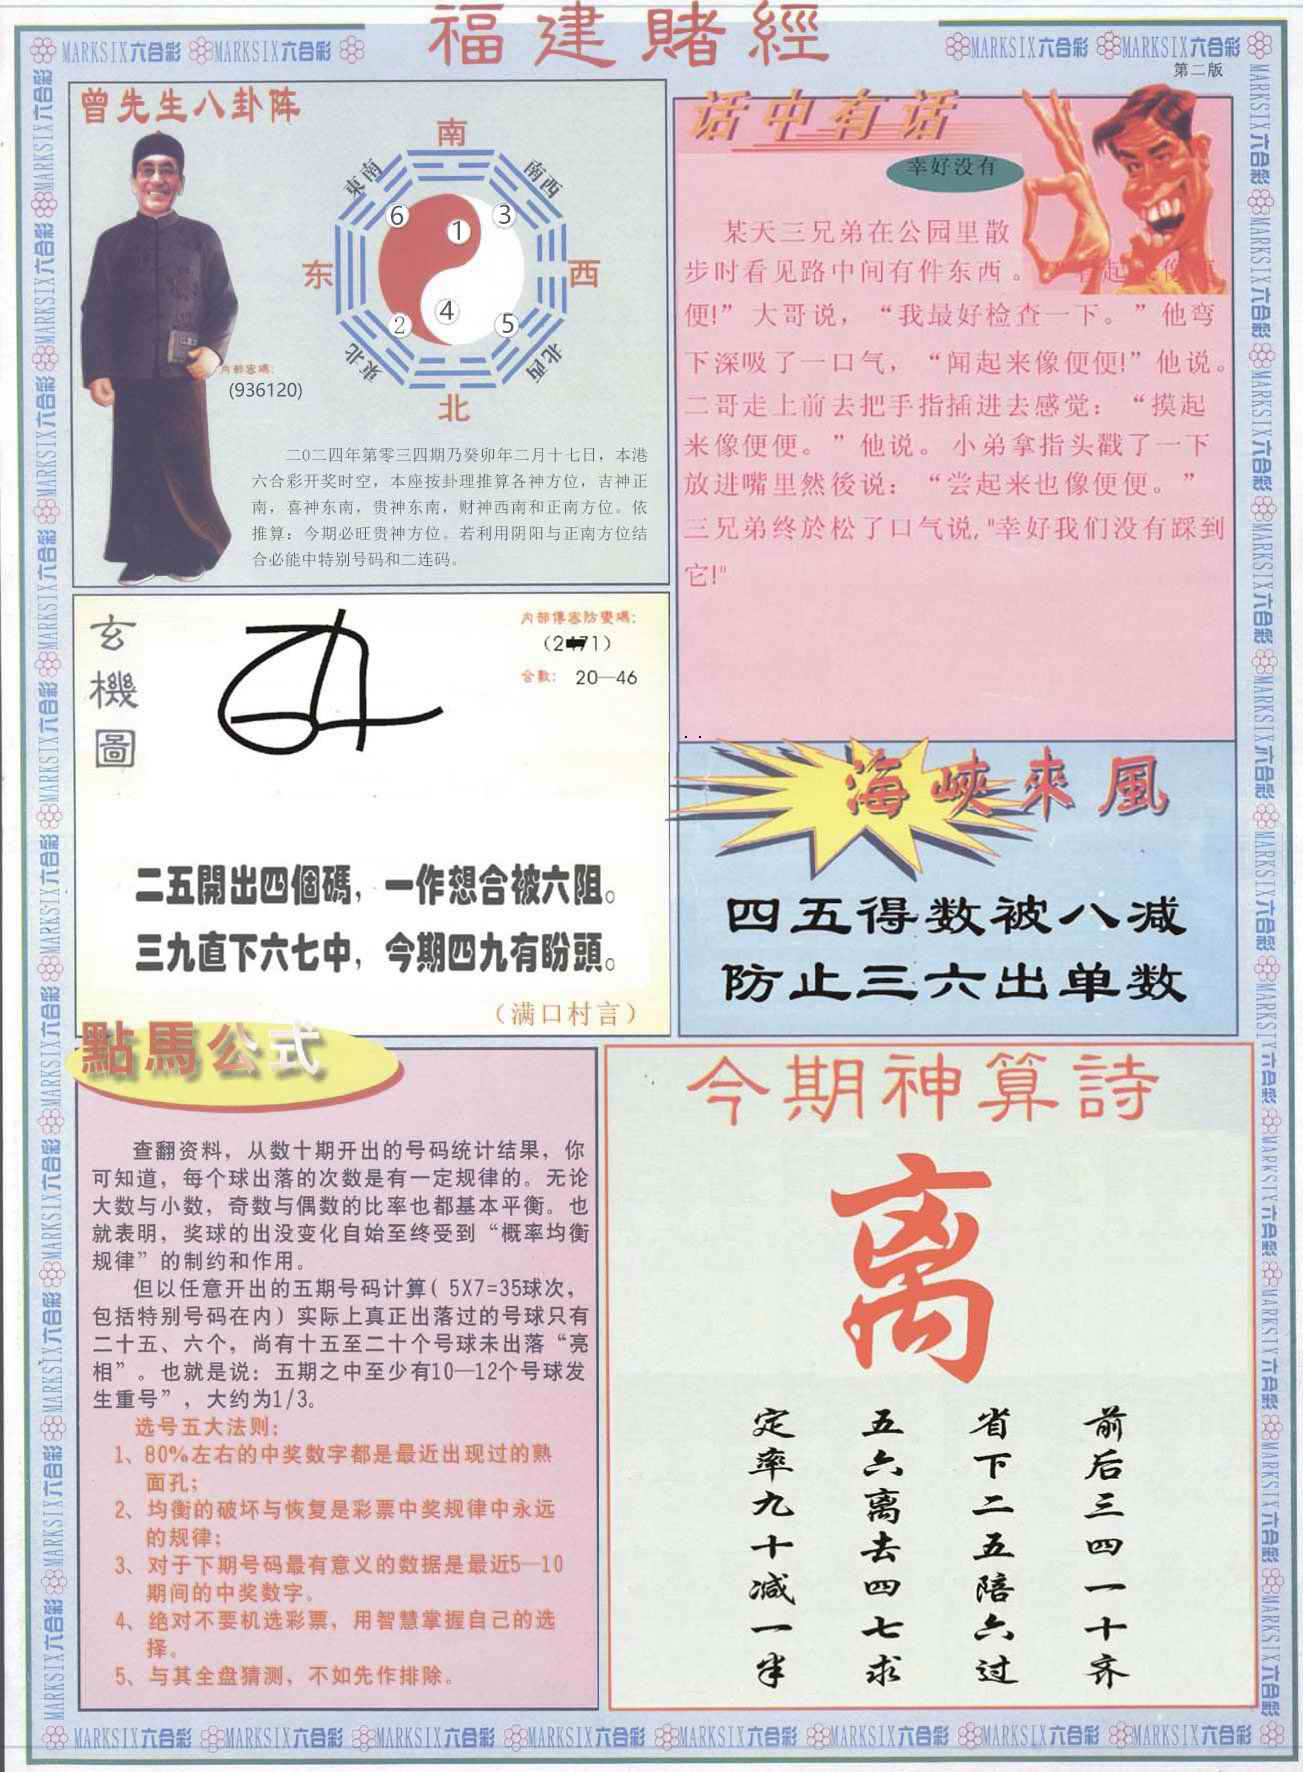 福建賭經
MARKSIX六合彩 MARKSIX六合彩
MARKSIX六合彩 MARKSIX六合彩
第二版
曾先生八卦阵
南
東南
南西
6
1
3
东
西
2
4
5
東北
北西
北
内部密碼:
(936120)
二0二四年第零三四期乃癸卯年二月十七日，本港
六合彩开奖时空，本座按卦理推算各神方位，吉神正
南，喜神东南，贵神东南，财神西南和正南方位。依
推算：今期必旺贵神方位。若利用阴阳与正南方位结
合必能中特别号码和二连码。
话中有话
幸好没有
某天三兄弟在公园里散
步时看见路中间有件东西。
便!”大哥说，“我最好检查一下。”他弯
下深吸了一口气，“闻起来像便便!”他说。
二哥走上前去把手指插进去感觉：“摸起
来像便便。”他说。小弟拿指头戳了一下
放进嘴里然後说：“尝起来也像便便。”
三兄弟终於松了口气说,"幸好我们没有踩到
它!"
玄機圖
内部傳密防變碼:
合數: 20—46
二五開出四個碼，一作想合被六阻。
三九直下六七中，今期四九有盼頭。
（满口村言）
海峽來風
四五得数被八减
防止三六出单数
點馬公式
查翻资料，从数十期开出的号码统计结果，你
可知道，每个球出落的次数是有一定规律的。无论
大数与小数，奇数与偶数的比率也都基本平衡。也
就表明，奖球的出没变化自始至终受到“概率均衡
规律”的制约和作用。
但以任意开出的五期号码计算( 5X7=35球次，
包括特别号码在内）实际上真正出落过的号球只有
二十五、六个，尚有十五至二十个号球未出落“亮
相”。也就是说：五期之中至少有10—12个号球发
生重号”，大约为1/3。
选号五大法则：
1、80%左右的中奖数字都是最近出现过的熟
面孔；
2、均衡的破坏与恢复是彩票中奖规律中永远
的规律；
3、对于下期号码最有意义的数据是最近5—10
期间的中奖数字。
4、绝对不要机选彩票，用智慧掌握自己的选
择。
5、与其全盘猜测，不如先作排除。
今期神算詩
离
前后三四一十齐
省下二五陪六过
五六离去四七求
定率九十减一半
MARKSIX六合彩 MARKSIX六合彩 MARKSIX六合彩 MARKSIX六合彩 MARKSIX六合彩 MARKSIX六合彩 MARKSIX六合彩 MARKSIX六合彩